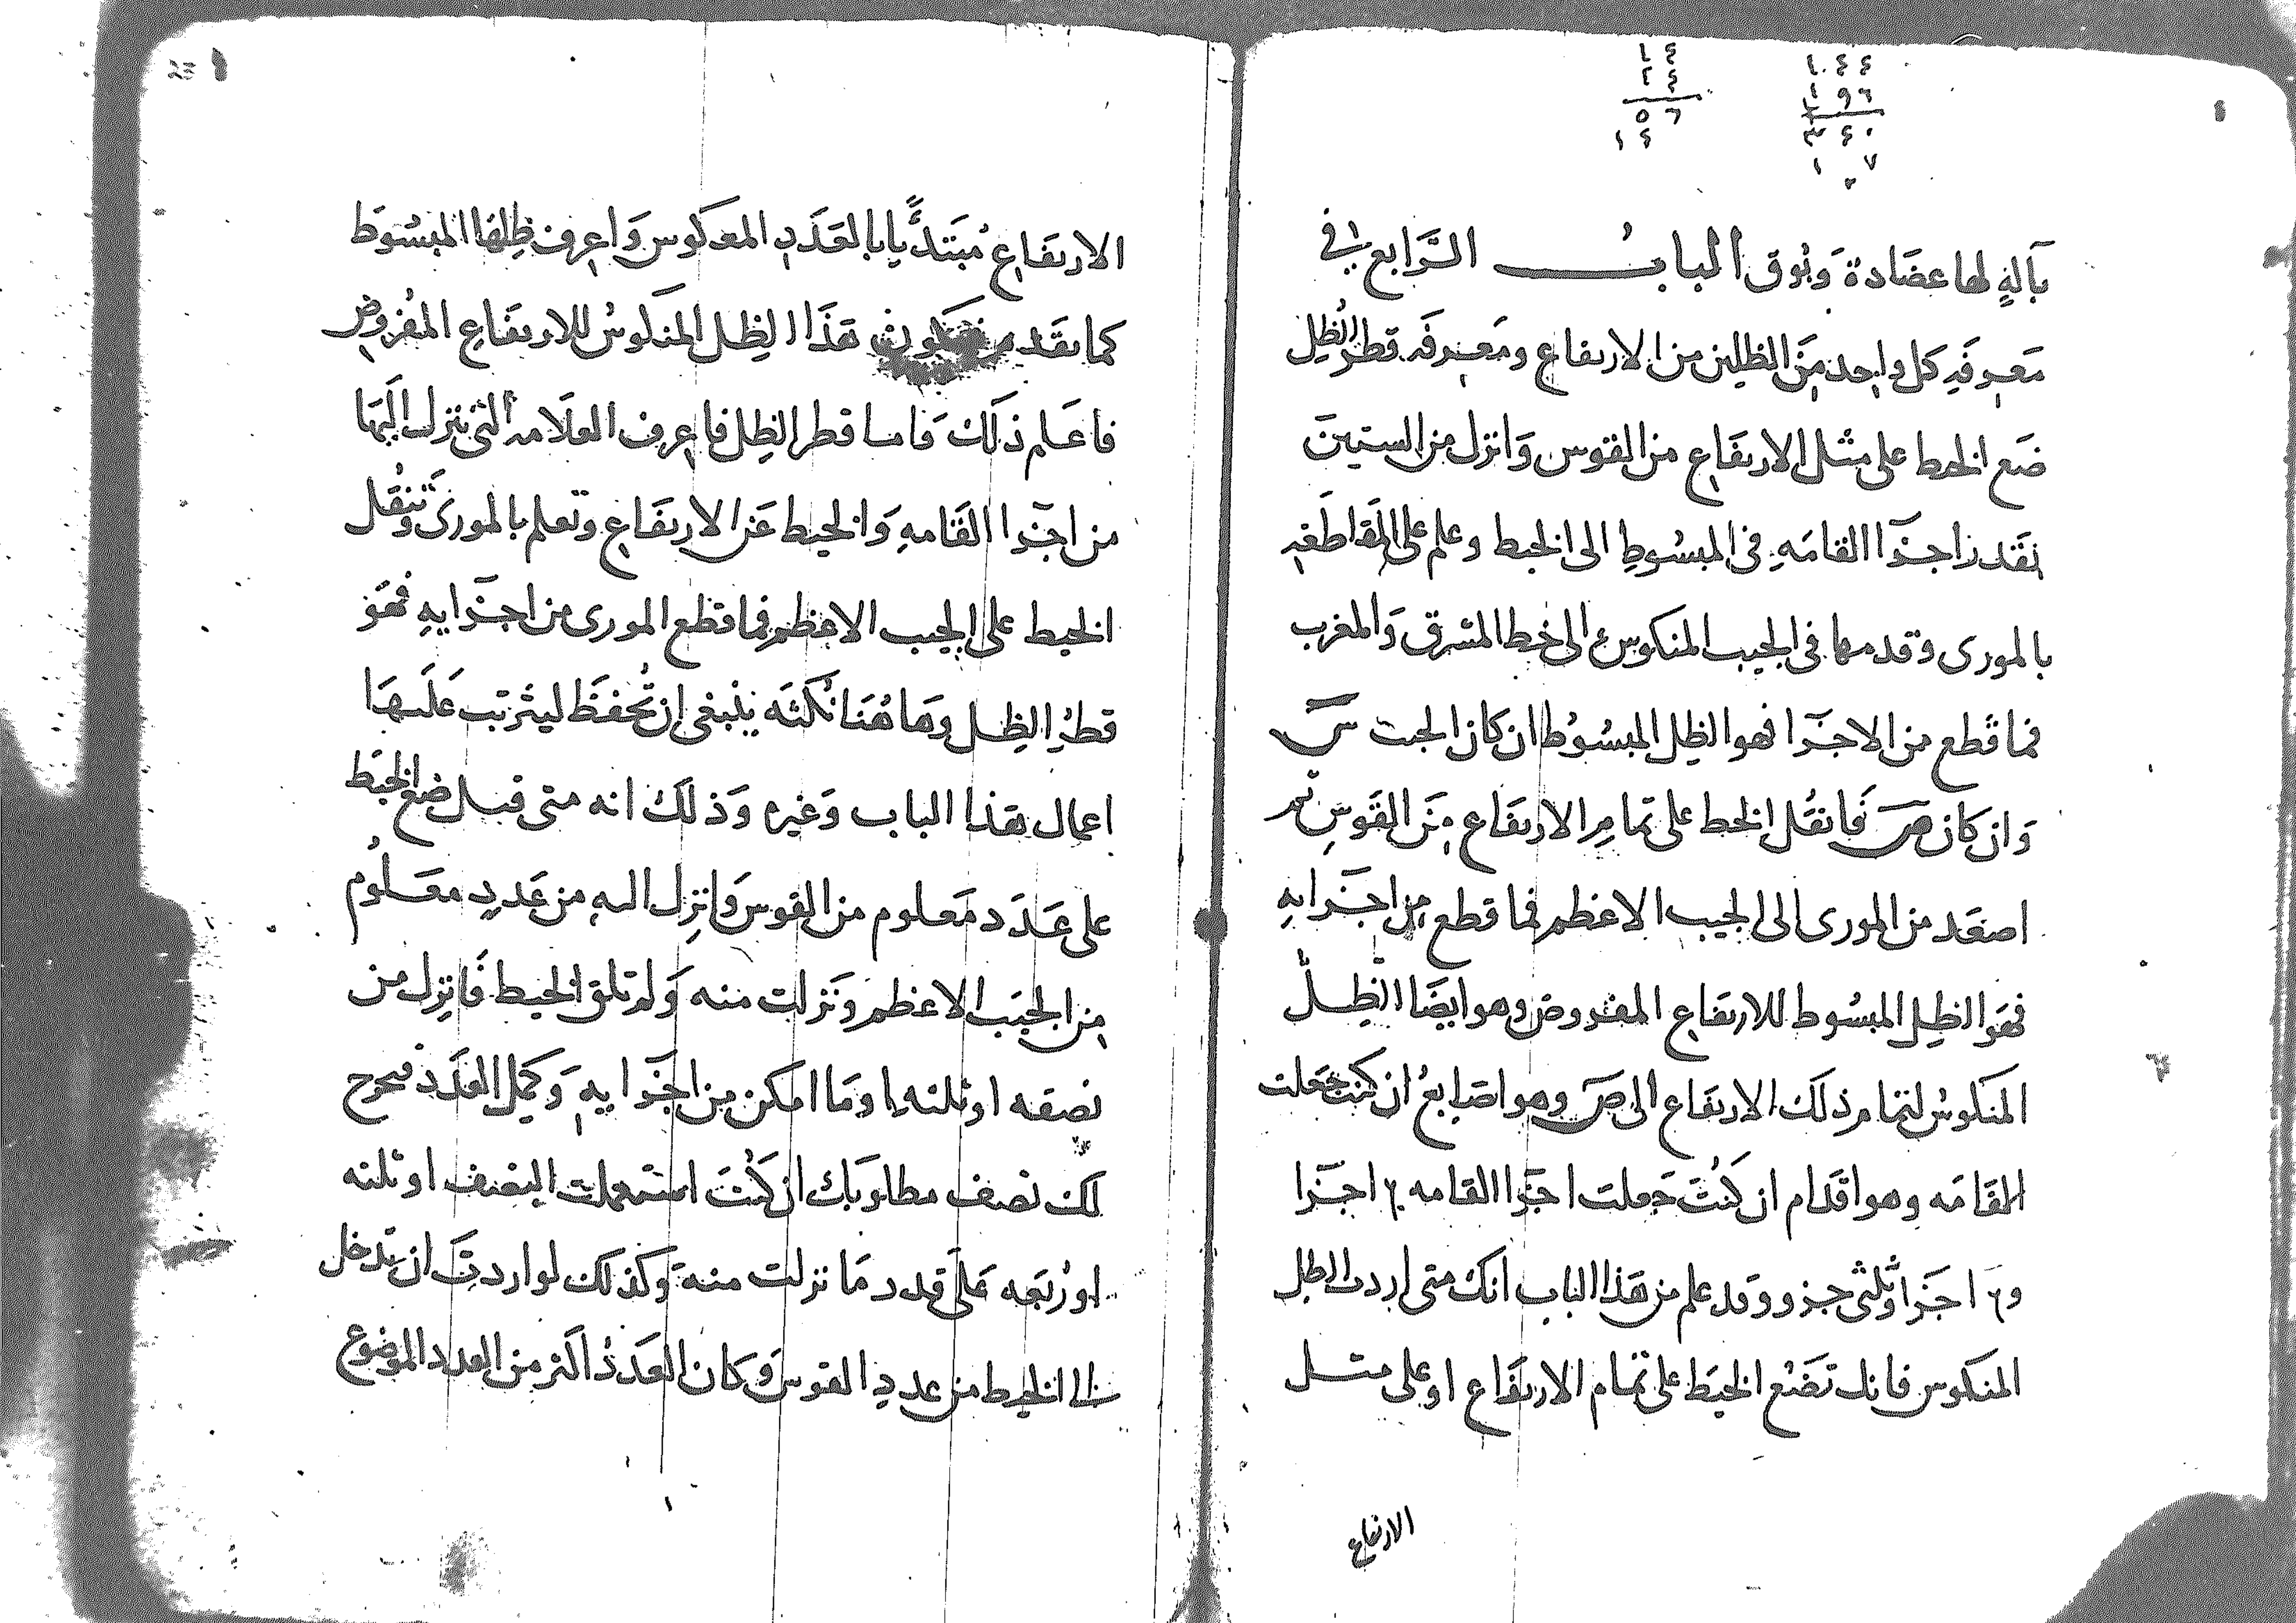 ١٤
٢٤
٥٦
١٤
١٤٤
١٩٦
٣٤٠
١ ٧
بآلةٍ لها عضادة وبُوق الباب الرَّابع في
معرفةِ كل واحد مِنَ الظلين من الارتفاع ومَعرفة قطر الظل
ضَع الخيط على مثل الارتفاع من القوس وَانزل من الستين
بقَدر اجزآ القامَهِ في المبسُوطِ الى الخيط وعلم على المقاطَعه
بالمورى وقدمها في الجيب المنكوس الى خط المشرق وَالمغرب
فما قطع من الاجزا فهو الظل المبسُوط ان كان الجيب س
وَان كان ص فَانقُل الخيط على تمامِ الارتفاع مِنَ القَوسِ ثم
اصعَد من المورى الى الجيب الاعظم فما قطع من اجزَايهِ
فهَو الظِل المبسُوط للارتفاع المفروض وهو ايضَا الظِلّ
المنكوسُ لتمام ذلَك الارتفَاع الى صَ وهو اصَابعُ ان كنت جَعلت
القَامَه وهو اقدَام ان كُنتَ جَعلت اجزا القامه ٢ اجزَا
و٢ اجَزَا وثلثى جزو وقد علم من هَذا الباب انك متى اردت الظل
المنكوس فانك تَضَع الخيَط على تمام الارتفَاع او على مثل
الارتفاع
23
الارتفَاع مُبتَدئًا بالعَدَدِ المعَكوس وَاعرِف ظِلهَا المبسُوَط
كما تقَدم فيكون هَذَا الظِل المنَكوسُ للارتفَاع المفُروض
فاعَلم ذلَك وَاما قطر الظِل فاعرف العلَامه التى تنزل اليَها
من اجزا القَامهِ وَالخيط عَن الارتفَاع وتعلم بالمورى وَتنقُل
الخيط على الجيب الاعظم فما قطع المورى من اجزَايهِ فهَو
قطرُ الظِل وهَا هُنَا نُكتَه ينبغى ان تُحفظَ ليترتب عَليهَا
اعمال هذا الباب وَغيره وَذلَك انه متى قيل ضع الخيَط
على عَدَد مَعلوم من القوس وَانزِل اليه من عَددٍ معَلُوم
من الجيَب الاعظم ونَزلت منه وَلم تلق الخيط فَانزِل من
نصفه او ثلثه او مَا امكن من اجَزايهِ وَكمل العَدَد فيخرج
لك نصف مطلوبَك ان كُنتَ استعملت النِصف او ثلثه
او رُبعَه عَلى قدر مَا نزلت منه وَكذلك لو اردتَ ان تدخل
الى الخيط من عددِ القوس وَكان العَدَدُ اكثر من العدد الموضوع